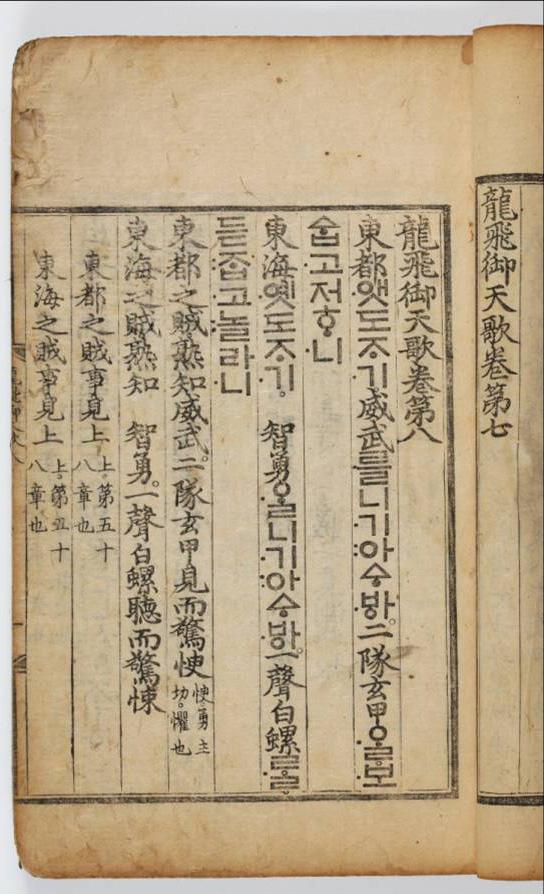 龍飛御天歌卷第七
龍飛御天歌卷第八
東都앳도ᄌᆞ기威武를니기아ᅀᆞᄫᅡ。二隊玄甲ᄋᆞᆯ보
ᅀᆞᆸ고저ᄒᆞ니
東海옛도ᄌᆞ기。智勇ᄋᆞᆯ니기아ᅀᆞᄫᅡ。一聲白螺ᄅᆞᆯ。
듣ᄌᆞᆸ고놀라니
東都之賊熟知威武。二隊玄甲見而驚
勇主
切。懼也
東海之賊熟知 智勇。一聲白螺聽而驚悚
東都之賊事見上
上。第五十
八章也
東海之賊事見上
上。第五十
八章也